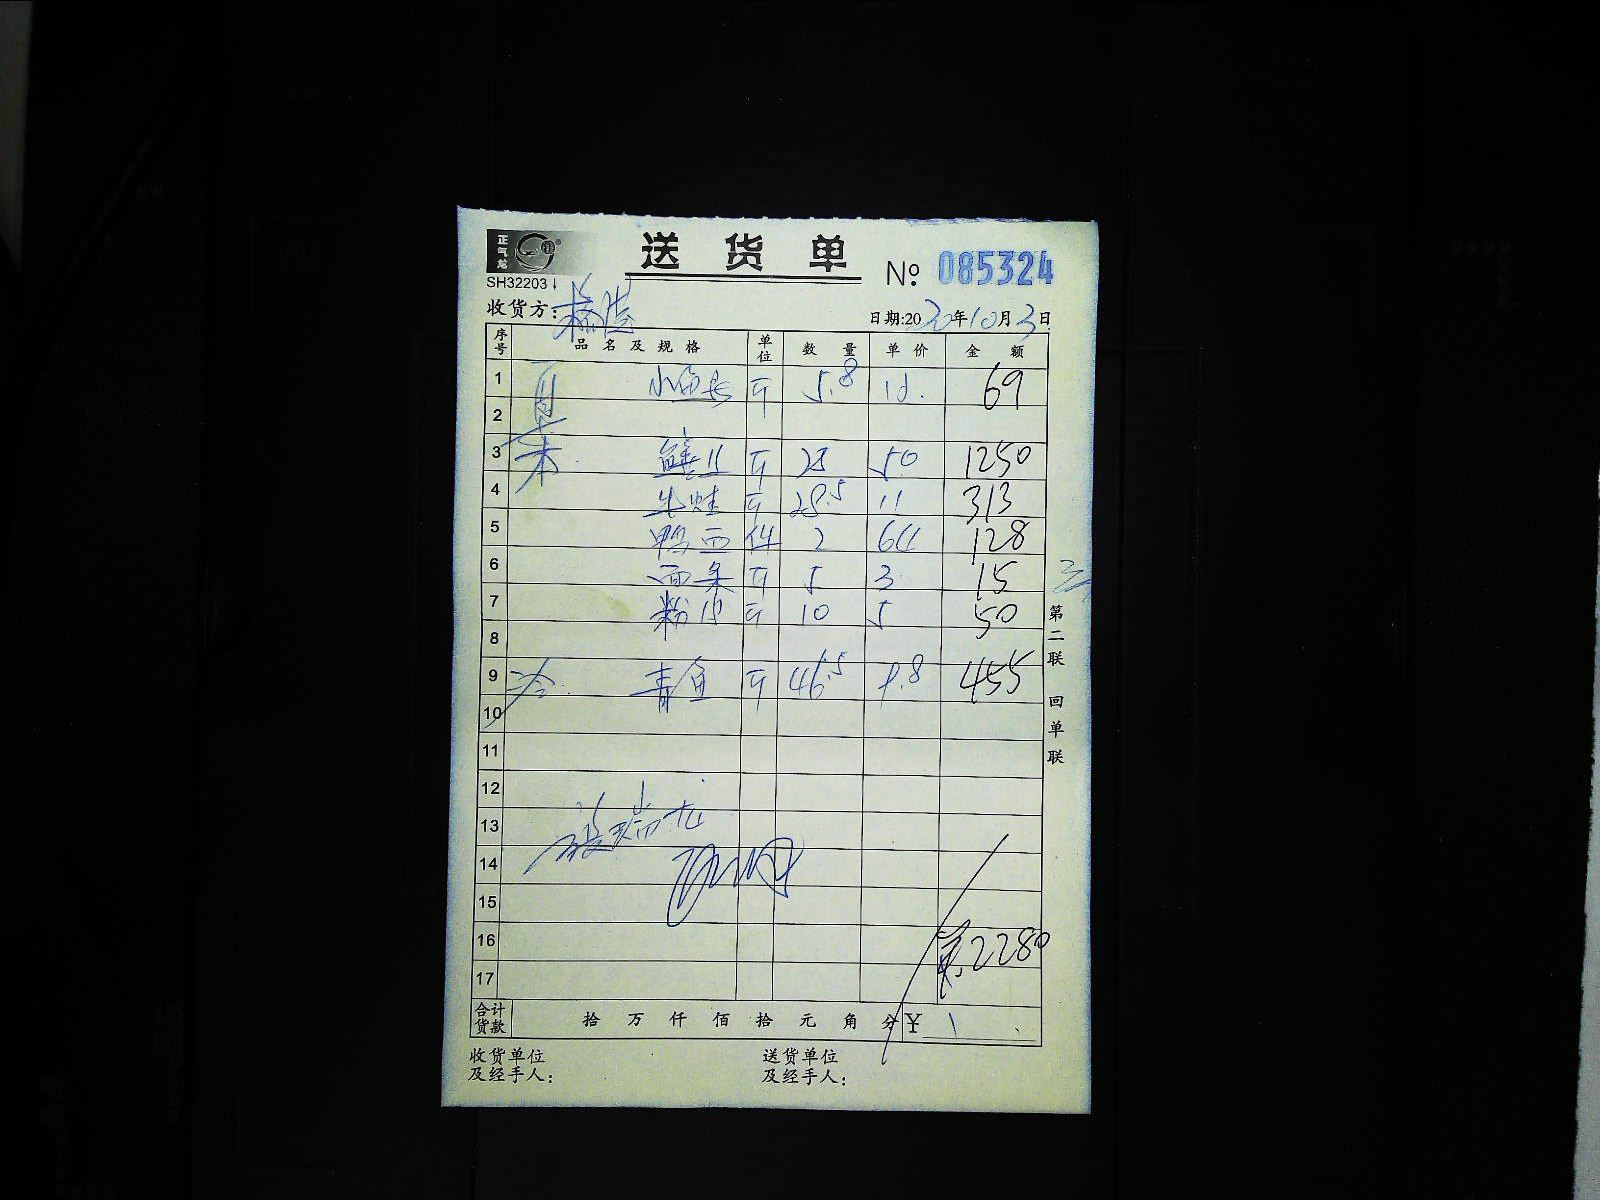 正气龙
送货单
№: 085324
SH32203
收货方:
日期:2020年10月3日
序号 品名及规格 单位 数量 单价 金额
1 斤 5.8 69
2
3 斤 25 50 1250
4 牛蛙 斤 28.5 11 313
5 鸭血 件 2 64 128
6 面条 斤 5 3 15
7 粉 斤 10 5 50
8
9 冷 青鱼 斤 46.5 9.8 455
10
11
12
13
14
15
16 2280
17
合计货款 拾 万 仟 佰 拾 元 角 分 ¥
第二联 回单联
收货单位 送货单位
及经手人: 及经手人: